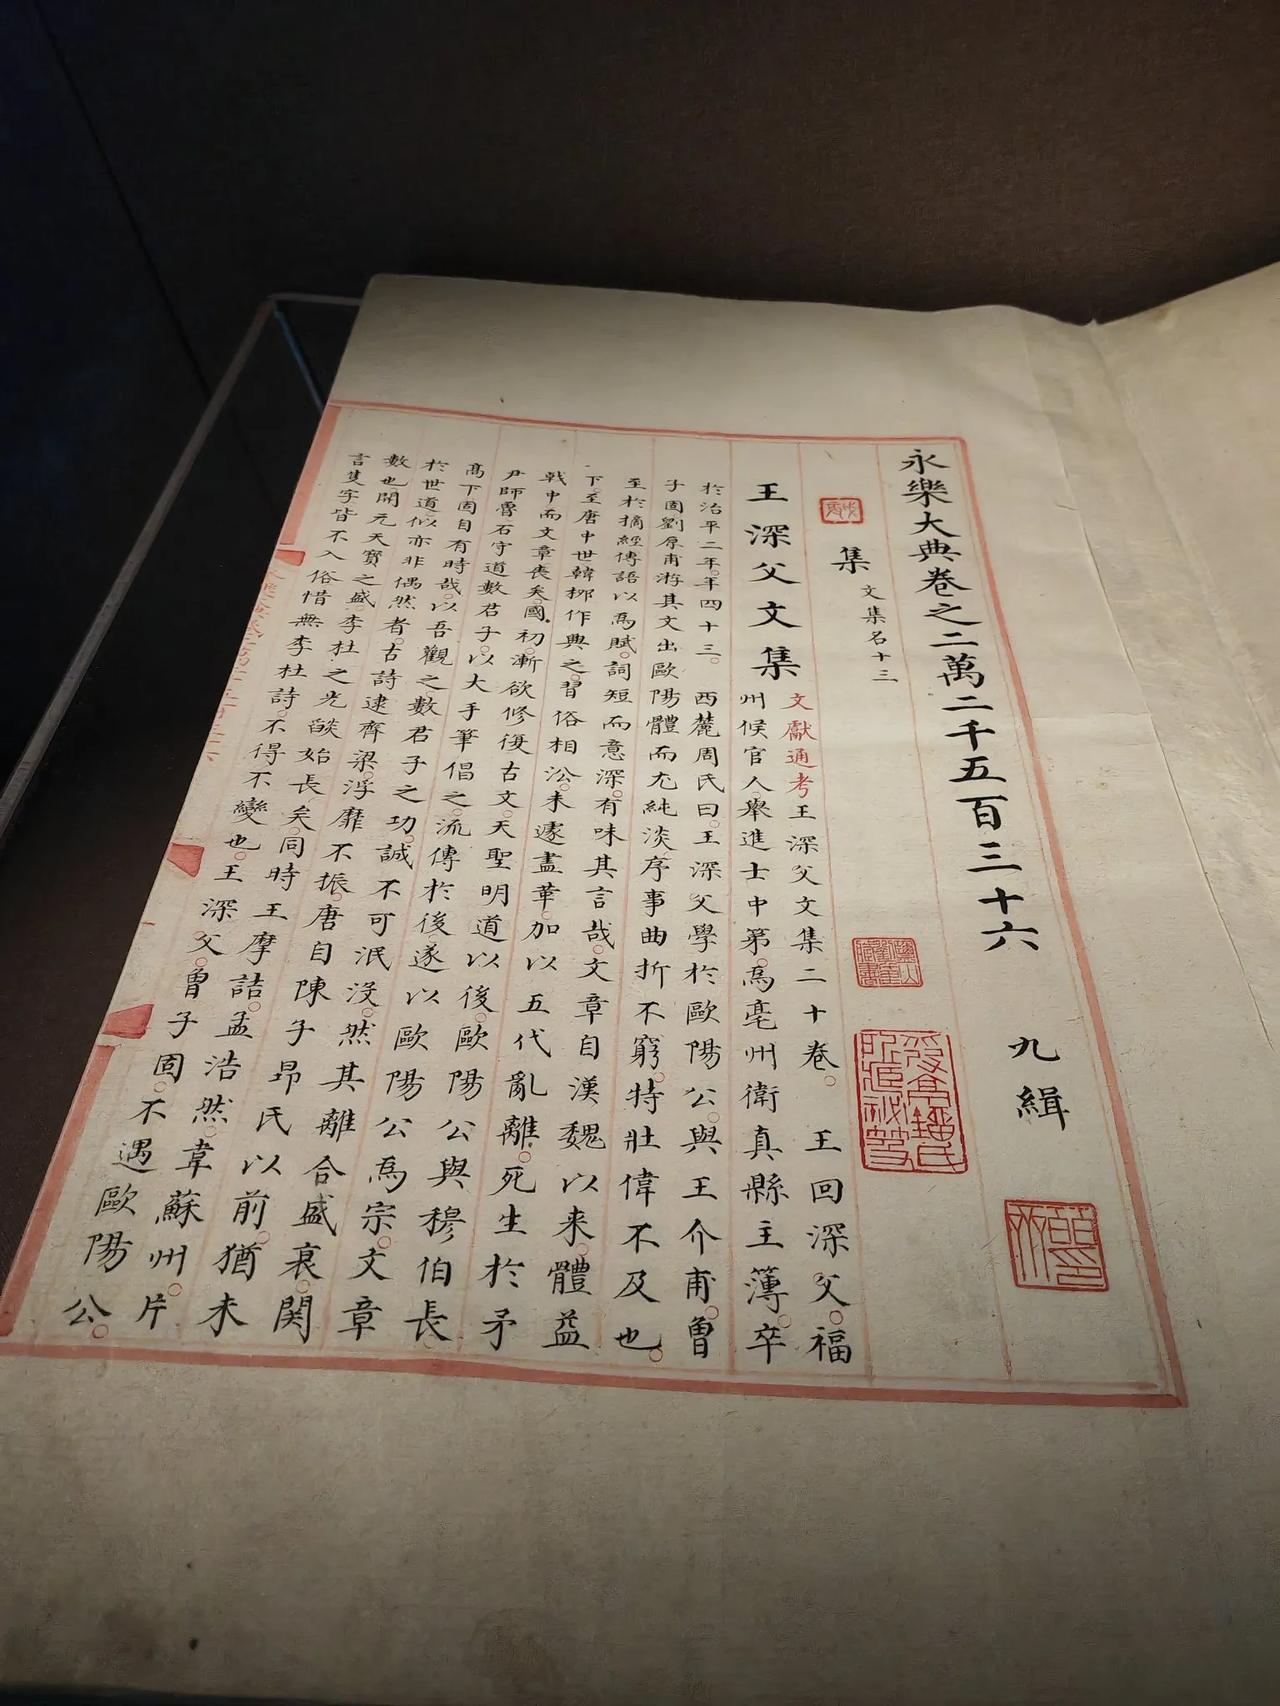 永樂大典卷之二萬二千五百三十六 九緝
集 文集名十三
王深父文集
文獻通考王深父文集二十卷。 王回深父。福
州候官人。舉進士中第。爲亳州衛真縣主簿。卒
於治平二年。年四十三。 西麓周氏曰。王深父學於歐陽公。與王介甫。曾
子固劉原甫游。其文出歐陽體而尤純淡。序事曲折不窮。特壯偉不及也。
至於摘經傳語以爲賦。詞短而意深。有味其言哉。文章自漢魏以来。體益
下至唐中世韓柳作典之。習俗相沿。未遽盡革。加以五代亂離。死生於矛
戟中而文章喪矣。國初。漸欲修復古文。天聖明道以後。歐陽公與穆伯長
尹師魯石守道數君子。以大手筆倡之。流傳於後。遂以歐陽公爲宗。文章
高下固自有時哉。以吾觀之。數君子之功。誠不可泯沒。然其離合盛衰。関
於世道。似亦非偶然者。古詩逮齊梁。浮靡不振。唐自陳子昂氏以前。猶未
數也。開元天寶之盛。李杜之光燄始長矣。同時王摩詰。孟浩然。韋蘇州。片
言隻字皆不入俗。惜無李杜詩。不得不變也。王深父。曾子固。不遇歐陽公。